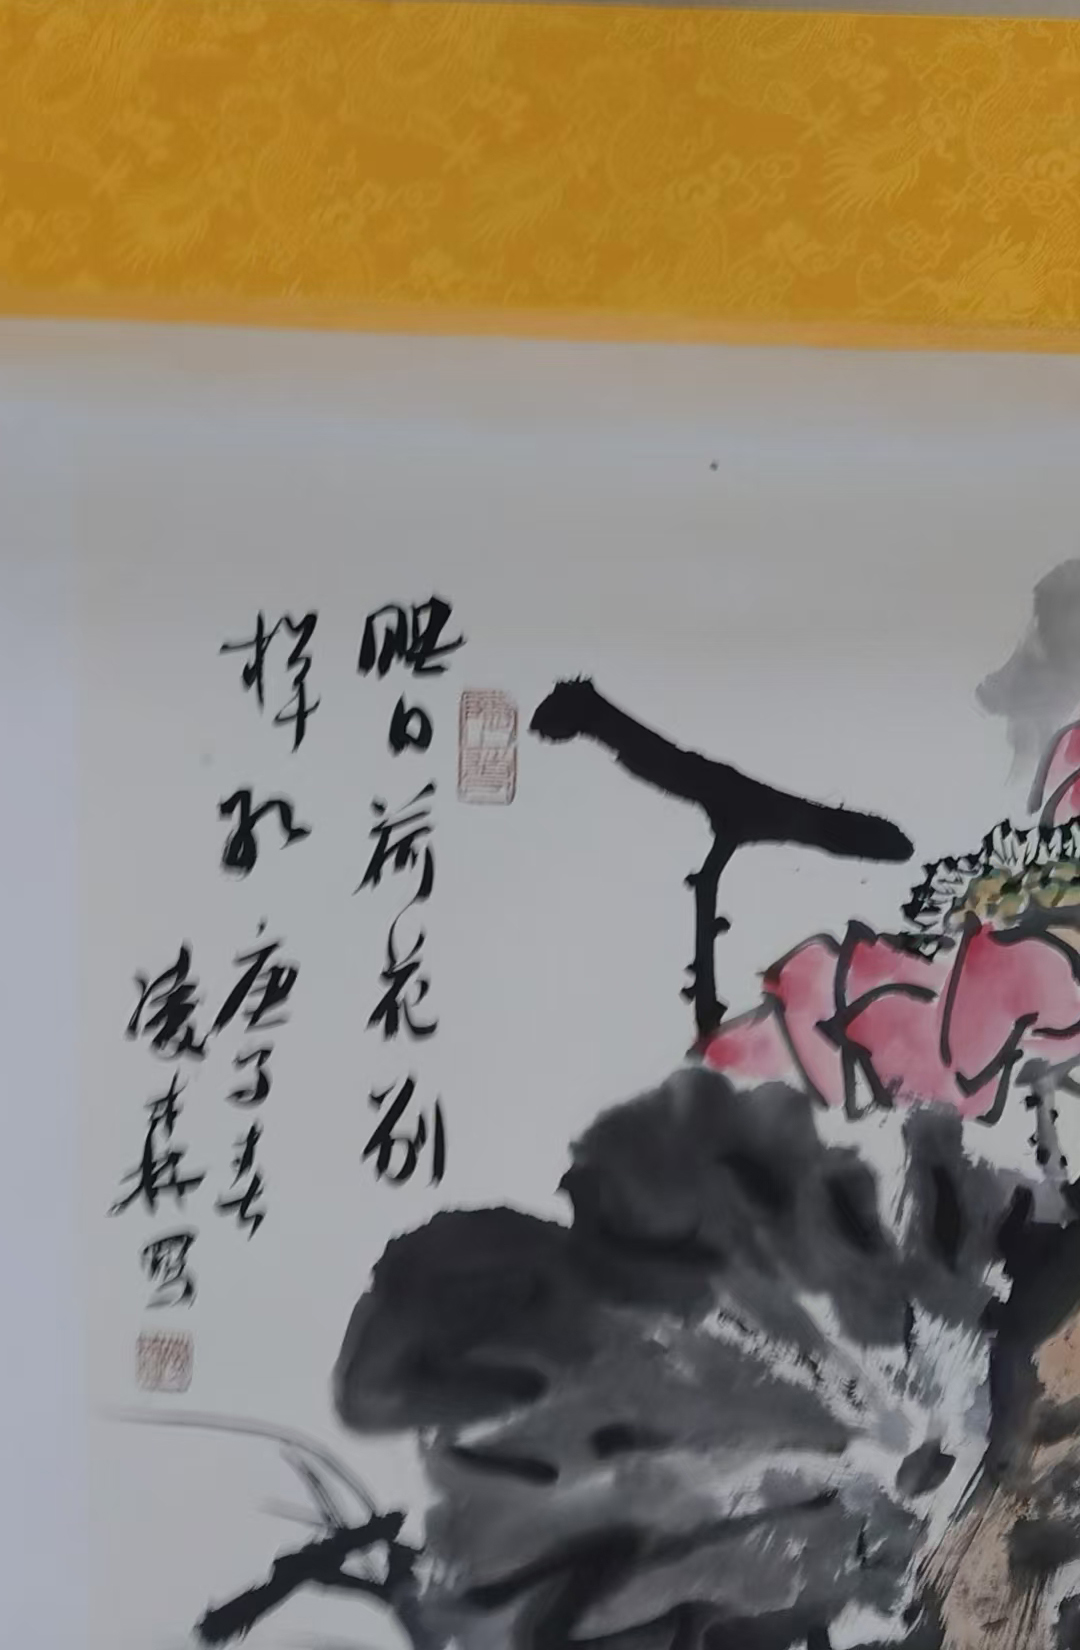 映日荷花别
样红 庚子春
凌春森写